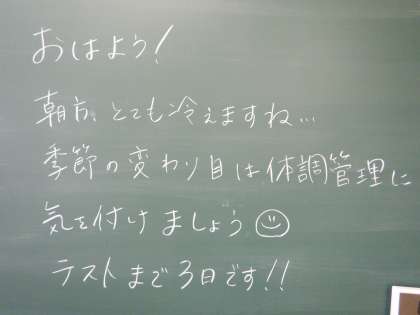 おはよう!
朝方、とても冷えますね…
季節の変わり目は体調管理に
気を付けましょう
テストまで3日です!!